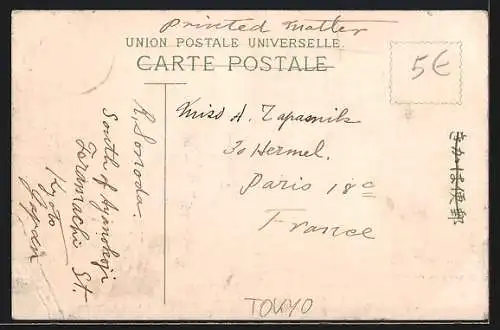 Printed Matter
UNION POSTALE UNIVERSELLE.
CARTE POSTALE
5€
Miss A. Zapasnik
30 Hermel.
Paris 18e
France
K. Sonoda.
South of
Teramachi St.
Kyoto
Japan
きかは便郵
TOKYO